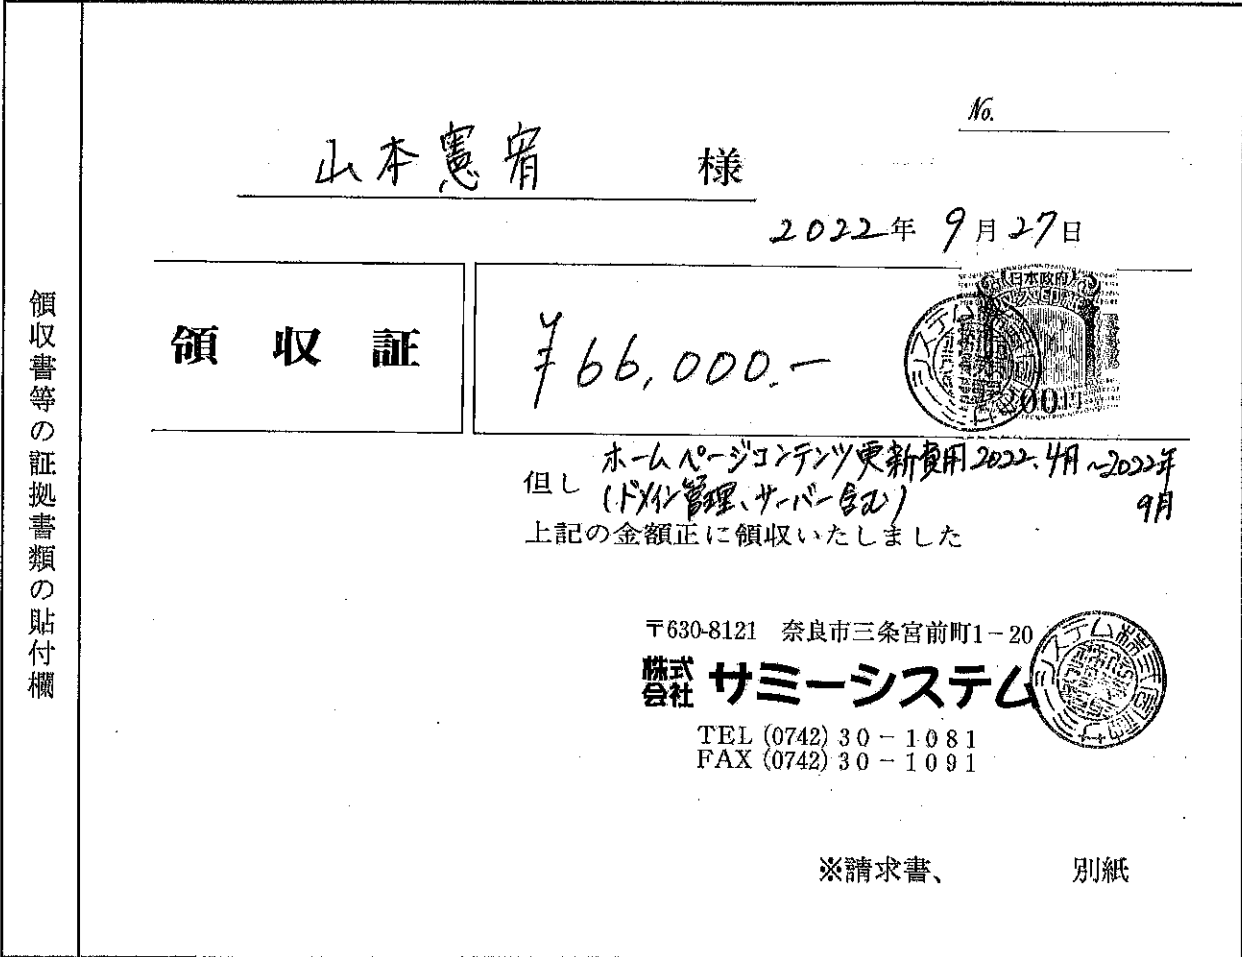 領収書等の証拠書類の貼付欄
No.
山本憲宥 様
2022年 9月27日
領収証
¥66,000.-
日本政府
200円
但し ホームページコンテンツ更新費用2022.4月~2022年9月
(ドメイン管理、サーバー含む)
上記の金額正に領収いたしました
〒630-8121 奈良市三条宮前町1-20
株式会社 サミーシステム
TEL (0742) 30-1081
FAX (0742) 30-1091
※請求書、 別紙